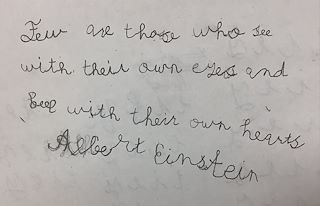 Few are those who see
with their own eyes and
feel with their own hearts
Albert Einstein